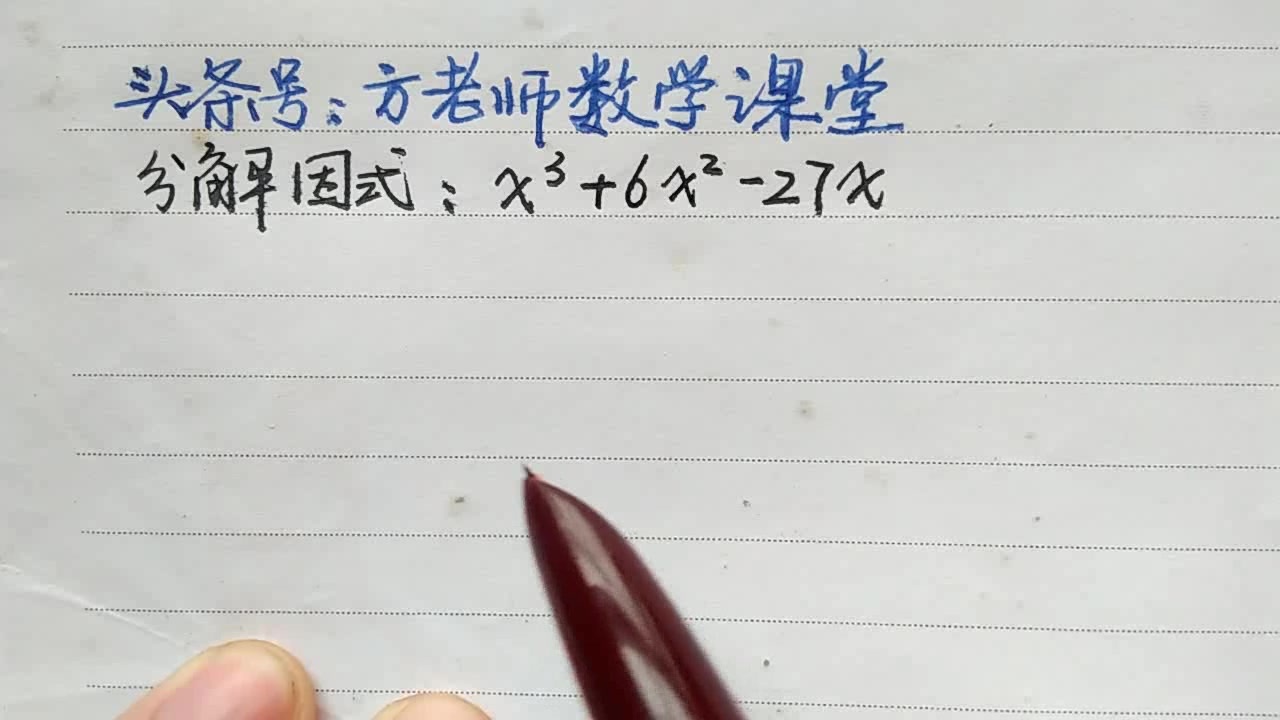 头条号:方老师数学课堂
分解因式:x³+6x²-27x